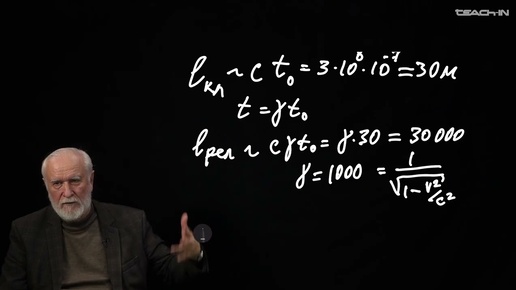 TEACH-IN
lкл ~ c t₀ = 3·10⁸·10⁻⁷ = 30 м
t = γ t₀
lрел ~ c γ t₀ = γ·30 = 30 000
γ = 1000 = 1/√(1 - v²/c²)